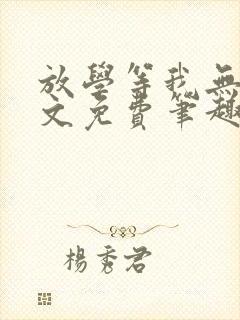 放學等我無
文免費筆趣
楊秀君